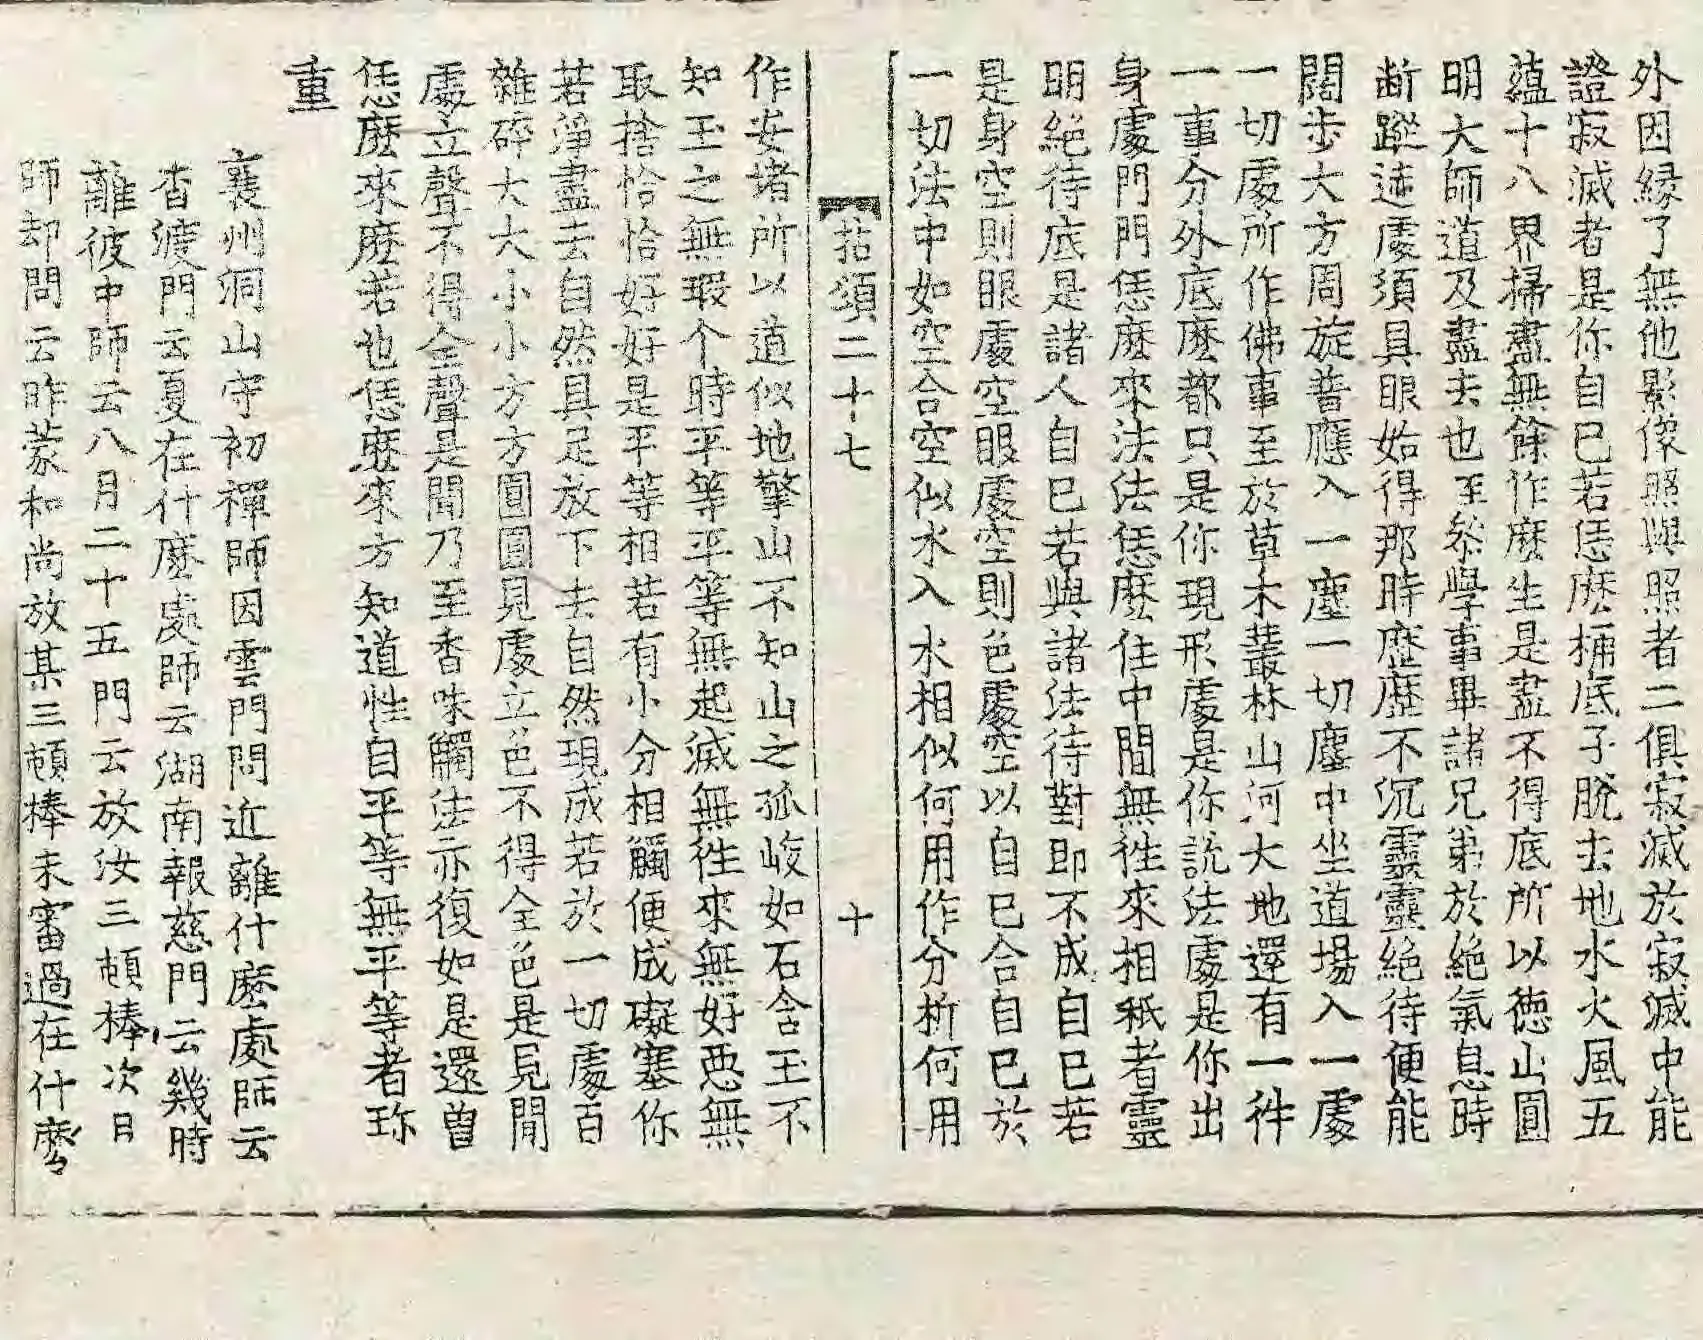 外因緣了無他影像照與照者二俱寂滅於寂滅中能
證寂滅者是你自己若恁麽桶底子脫去地水火風五
蘊十八界掃盡無餘作麽生是盡不得底所以德山圓
明大師道及盡去也至叅學事畢諸兄弟於絶氣息時
斷蹤迹處須具眼始得那時歷歷不沉靈靈絶待便能
闊步大方周旋普應入一塵一切塵中坐道場入一處
一切處所作佛事至於草木叢林山河大地還有一件
一事分外底麽都只是你現形處是你說法處是你出
身處門門恁麽來法法恁麽住中間無徃來相秖者靈
明絶待底是諸人自己若與諸法待對即不成自己若
是身空則眼處空眼處空則色處空以自己合自己於
一切法中如空合空似水入水相似何用作分析何用
拈頌二十七 十
作安堵所以道似地擎山不知山之孤峻如石含玉不
知玉之無瑕个時平等平等無起滅無徃來無好惡無
取捨恰恰好好是平等相若有小分相觸便成礙塞你
若淨盡去自然具足放下去自然現成若於一切處百
雜碎大大小小方方圓圓見處立色不得全色是見聞
處立聲不得全聲是聞乃至香味觸法亦復如是還曾
恁麽來麽若也恁麽來方知道性自平等無平等者珎
重
襄州洞山守初禪師因雲門問近離什麽處師云
查渡門云夏在什麽處師云湖南報慈門云幾時
離彼中師云八月二十五門云放汝三頓棒次日
師却問云昨蒙和尚放某三頓棒未審過在什麽